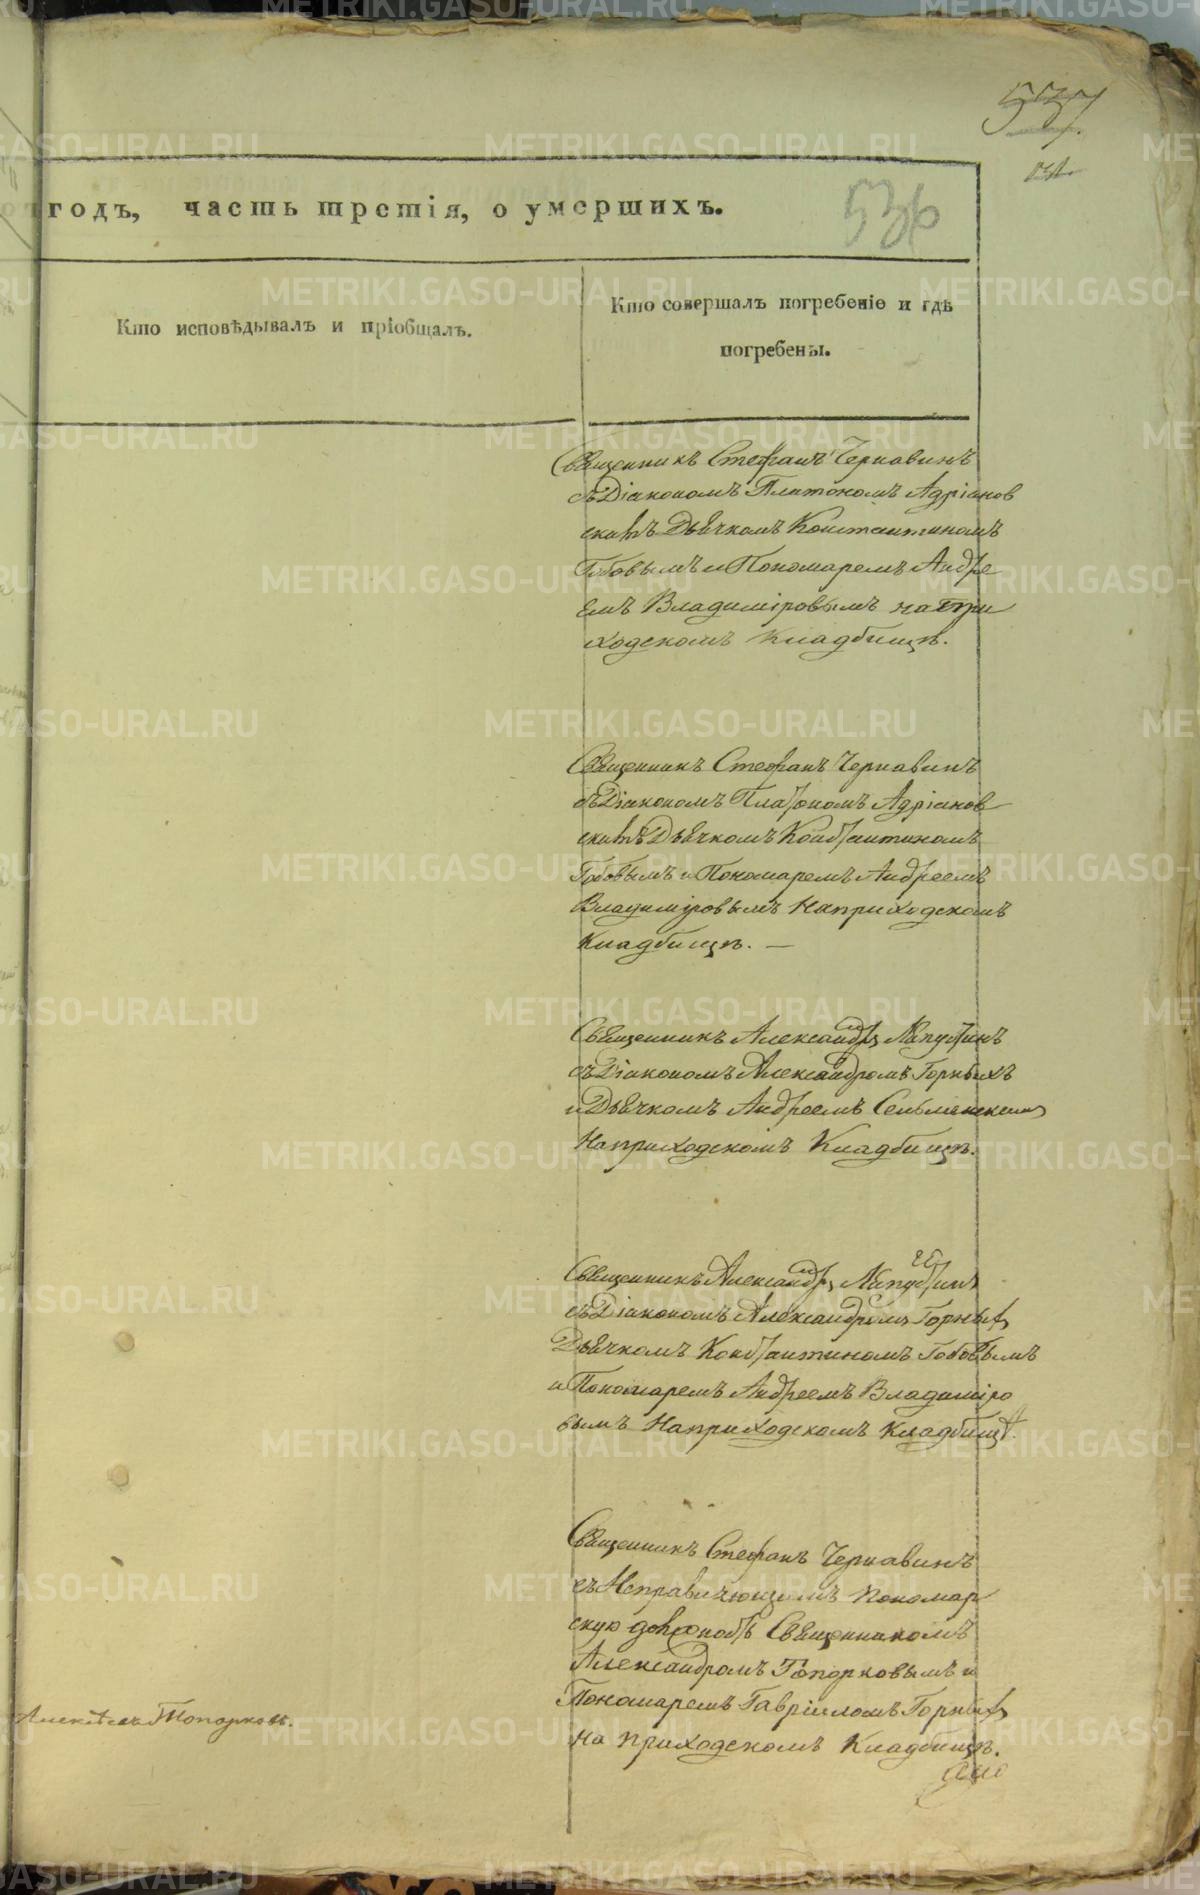 537
536
годъ, часть третія, о умершихъ.
Кто исповѣдывалъ и пріобщалъ.
Кто совершалъ погребеніе и гдѣ
погребены.
Священникъ Стефанъ Чернавинъ
съ Діакономъ Платономъ Адріанов
скимъ Дьячкомъ Константиномъ
Гобовымъ и Пономаремъ Андре
емъ Владиміровымъ на при
ходскомъ Кладбищѣ.
Священникъ Стефанъ Чернавинъ
съ Діакономъ Платономъ Адріанов
скимъ Дьячкомъ Константиномъ
Гобовымъ и Пономаремъ Андреемъ
Владиміровымъ На приходскомъ
Кладбищѣ. —
Священникъ Александръ Лапустинъ
съ Діакономъ Александромъ Горныхъ
и Дьячкомъ Андреемъ
На приходскомъ Кладбищѣ.
Священникъ Александръ Лапустинъ
съ Діакономъ Александромъ Горныхъ
Дьячкомъ Константиномъ Гобовымъ
и Пономаремъ Андреемъ Владиміро
вымъ На приходскомъ Кладбищѣ.
Священникъ Стефанъ Чернавинъ
съ Исправляющимъ пономар
скую должность Священникомъ
Александромъ Топорковымъ и
Пономаремъ Гавріиломъ Горныхъ
на приходскомъ Кладбищѣ.
Топорковъ.
METRIKI.GASO-URAL.RU